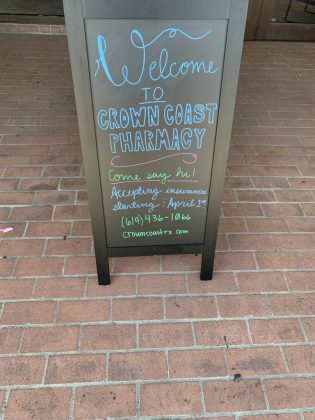 Welcome
TO
CROWN COAST
PHARMACY
Come say hi!
Accepting insurances
starting: April 1st
(619)436-1066
crowncoastrx.com